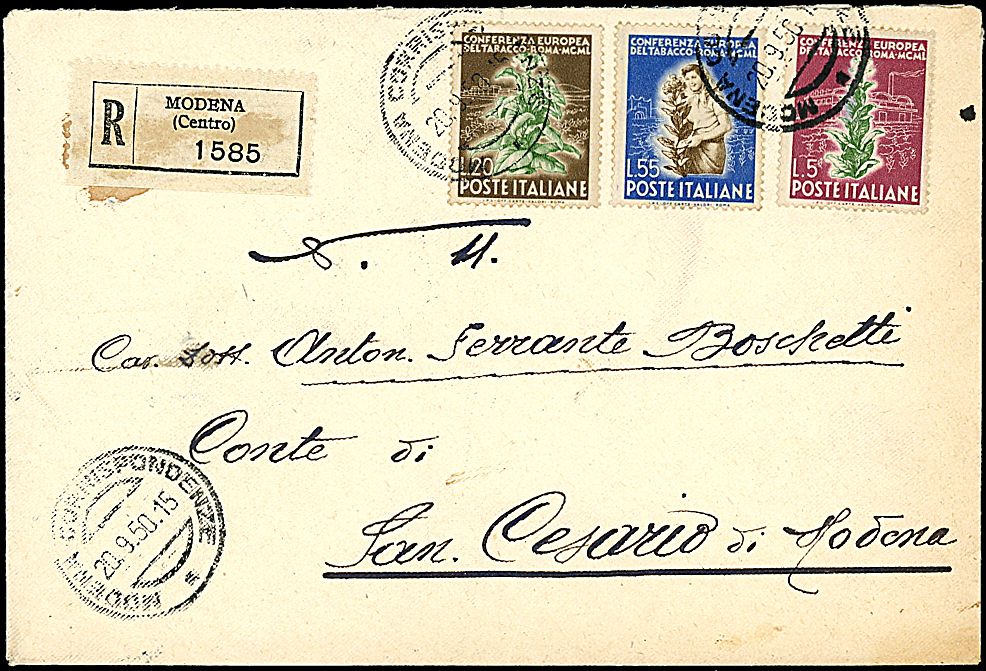 R
MODENA
(Centro)
1585
CONFERENZA EUROPEA
DEL TABACCO-ROMA-MCML
L.20
POSTE ITALIANE
CONFERENZA EUROPEA
DEL TABACCO-ROMA-MCML
L.55
POSTE ITALIANE
CONFERENZA EUROPEA
DEL TABACCO-ROMA-MCML
L.5
POSTE ITALIANE
MODENA CORRIS
20.9.50.15
MODENA
20.9.50.15
N. H.
Cav. Dott. Anton. Ferrante Boschetti
Conte di
San. Cesario di Modena
MODENA CORRISPONDENZE
20.9.50.15